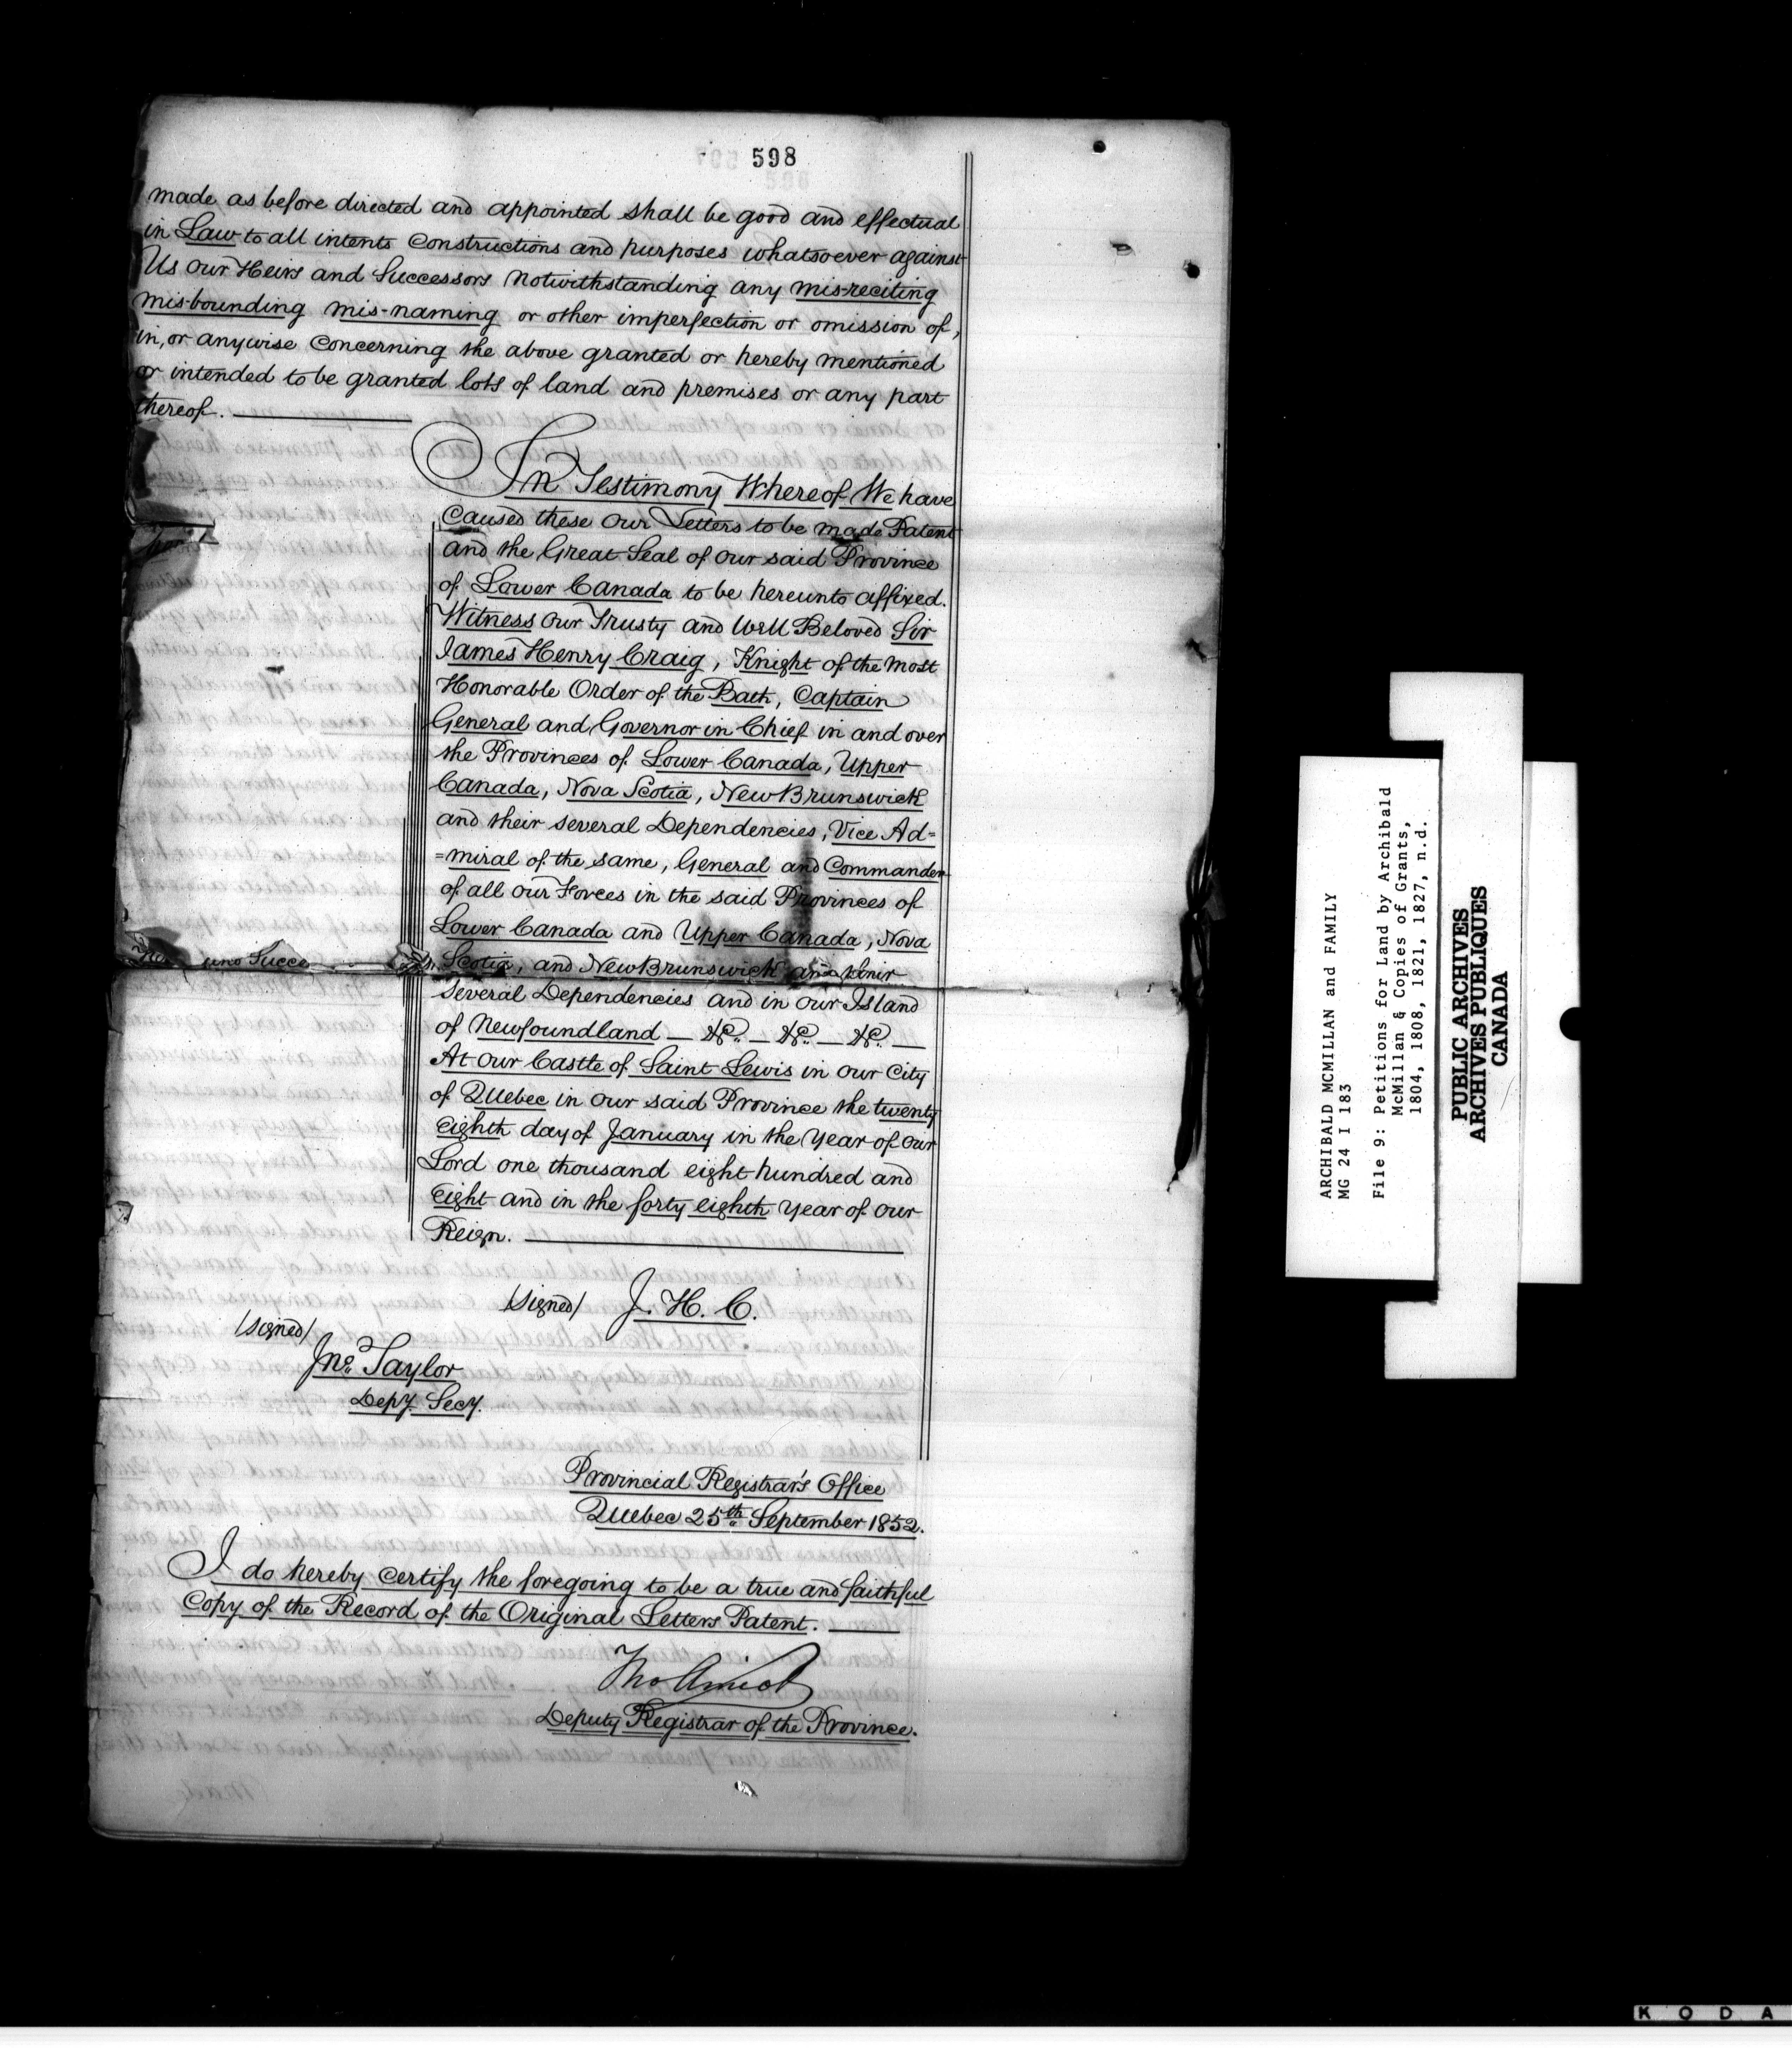 598
made as before directed and appointed shall be good and effectual
in Law to all intents constructions and purposes whatsoever against
Us our Heirs and Successors notwithstanding any mis-reciting
mis-bounding mis-naming or other imperfection or omission of,
in, or anywise concerning the above granted or hereby mentioned
or intended to be granted lots of land and premises or any part
thereof.
In Testimony Whereof We have
caused these our Letters to be made Patent
and the Great Seal of our said Province
of Lower Canada to be hereunto affixed.
Witness our Trusty and Well Beloved Sir
James Henry Craig, Knight of the most
Honorable Order of the Bath, Captain
General and Governor in Chief in and over
the Provinces of Lower Canada, Upper
Canada, Nova Scotia, New Brunswick
and their several Dependencies, Vice Ad=
=miral of the same, General and Commander
of all our Forces in the said Provinces of
Lower Canada and Upper Canada, Nova
Scotia, and New Brunswick and their
several Dependencies and in our Island
of Newfoundland — &c. — &c. — &c. —
At our Castle of Saint Lewis in our City
of Quebec in our said Province the twenty
eighth day of January in the Year of our
Lord one thousand eight hundred and
eight and in the forty eighth Year of our
Reign.
/signed/ J. H. C.
/signed/
Jno. Taylor
Depy. Secy.
Provincial Registrar's Office
Quebec 25th September 1852.
I do hereby certify the foregoing to be a true and faithful
Copy of the Record of the Original Letters Patent.
Tho Amiot
Deputy Registrar of the Province.
ARCHIBALD MCMILLAN and FAMILY
MG 24 I 183
File 9: Petitions for Land by Archibald
McMillan & Copies of Grants,
1804, 1808, 1821, 1827, n.d.
PUBLIC ARCHIVES
ARCHIVES PUBLIQUES
CANADA
KODA